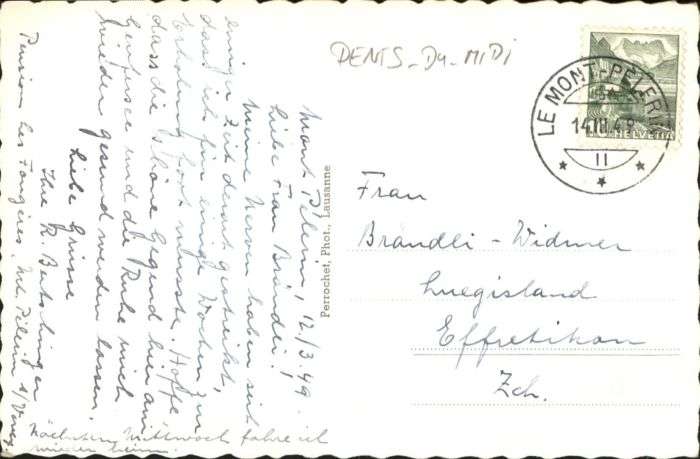 DENTS-DU-MIDI
LE MONT-PÈLERIN
14.III.49
II
HELVETIA
Mont Pèlerin, 12./3.49.
Liebe Frau Brändli!
Meine Nerven haben seit
einiger Zeit derart gestreikt,
dass ich für einige Wochen zur
Erholung fort musste. Hoffe
dass die schöne Gegend hier am
Genfersee und die Ruhe mich
wieder gesund werden lassen.
Liebe Grüsse
Ihre R.
Pension les Fougères, Mt. Pèlerin s/Vevey
Nächsten Mittwoch fahre ich
wieder heim.
Perrochet, Phot., Lausanne
Frau
Brändli-Widmer
Luegisland
Effretikon
Zch.